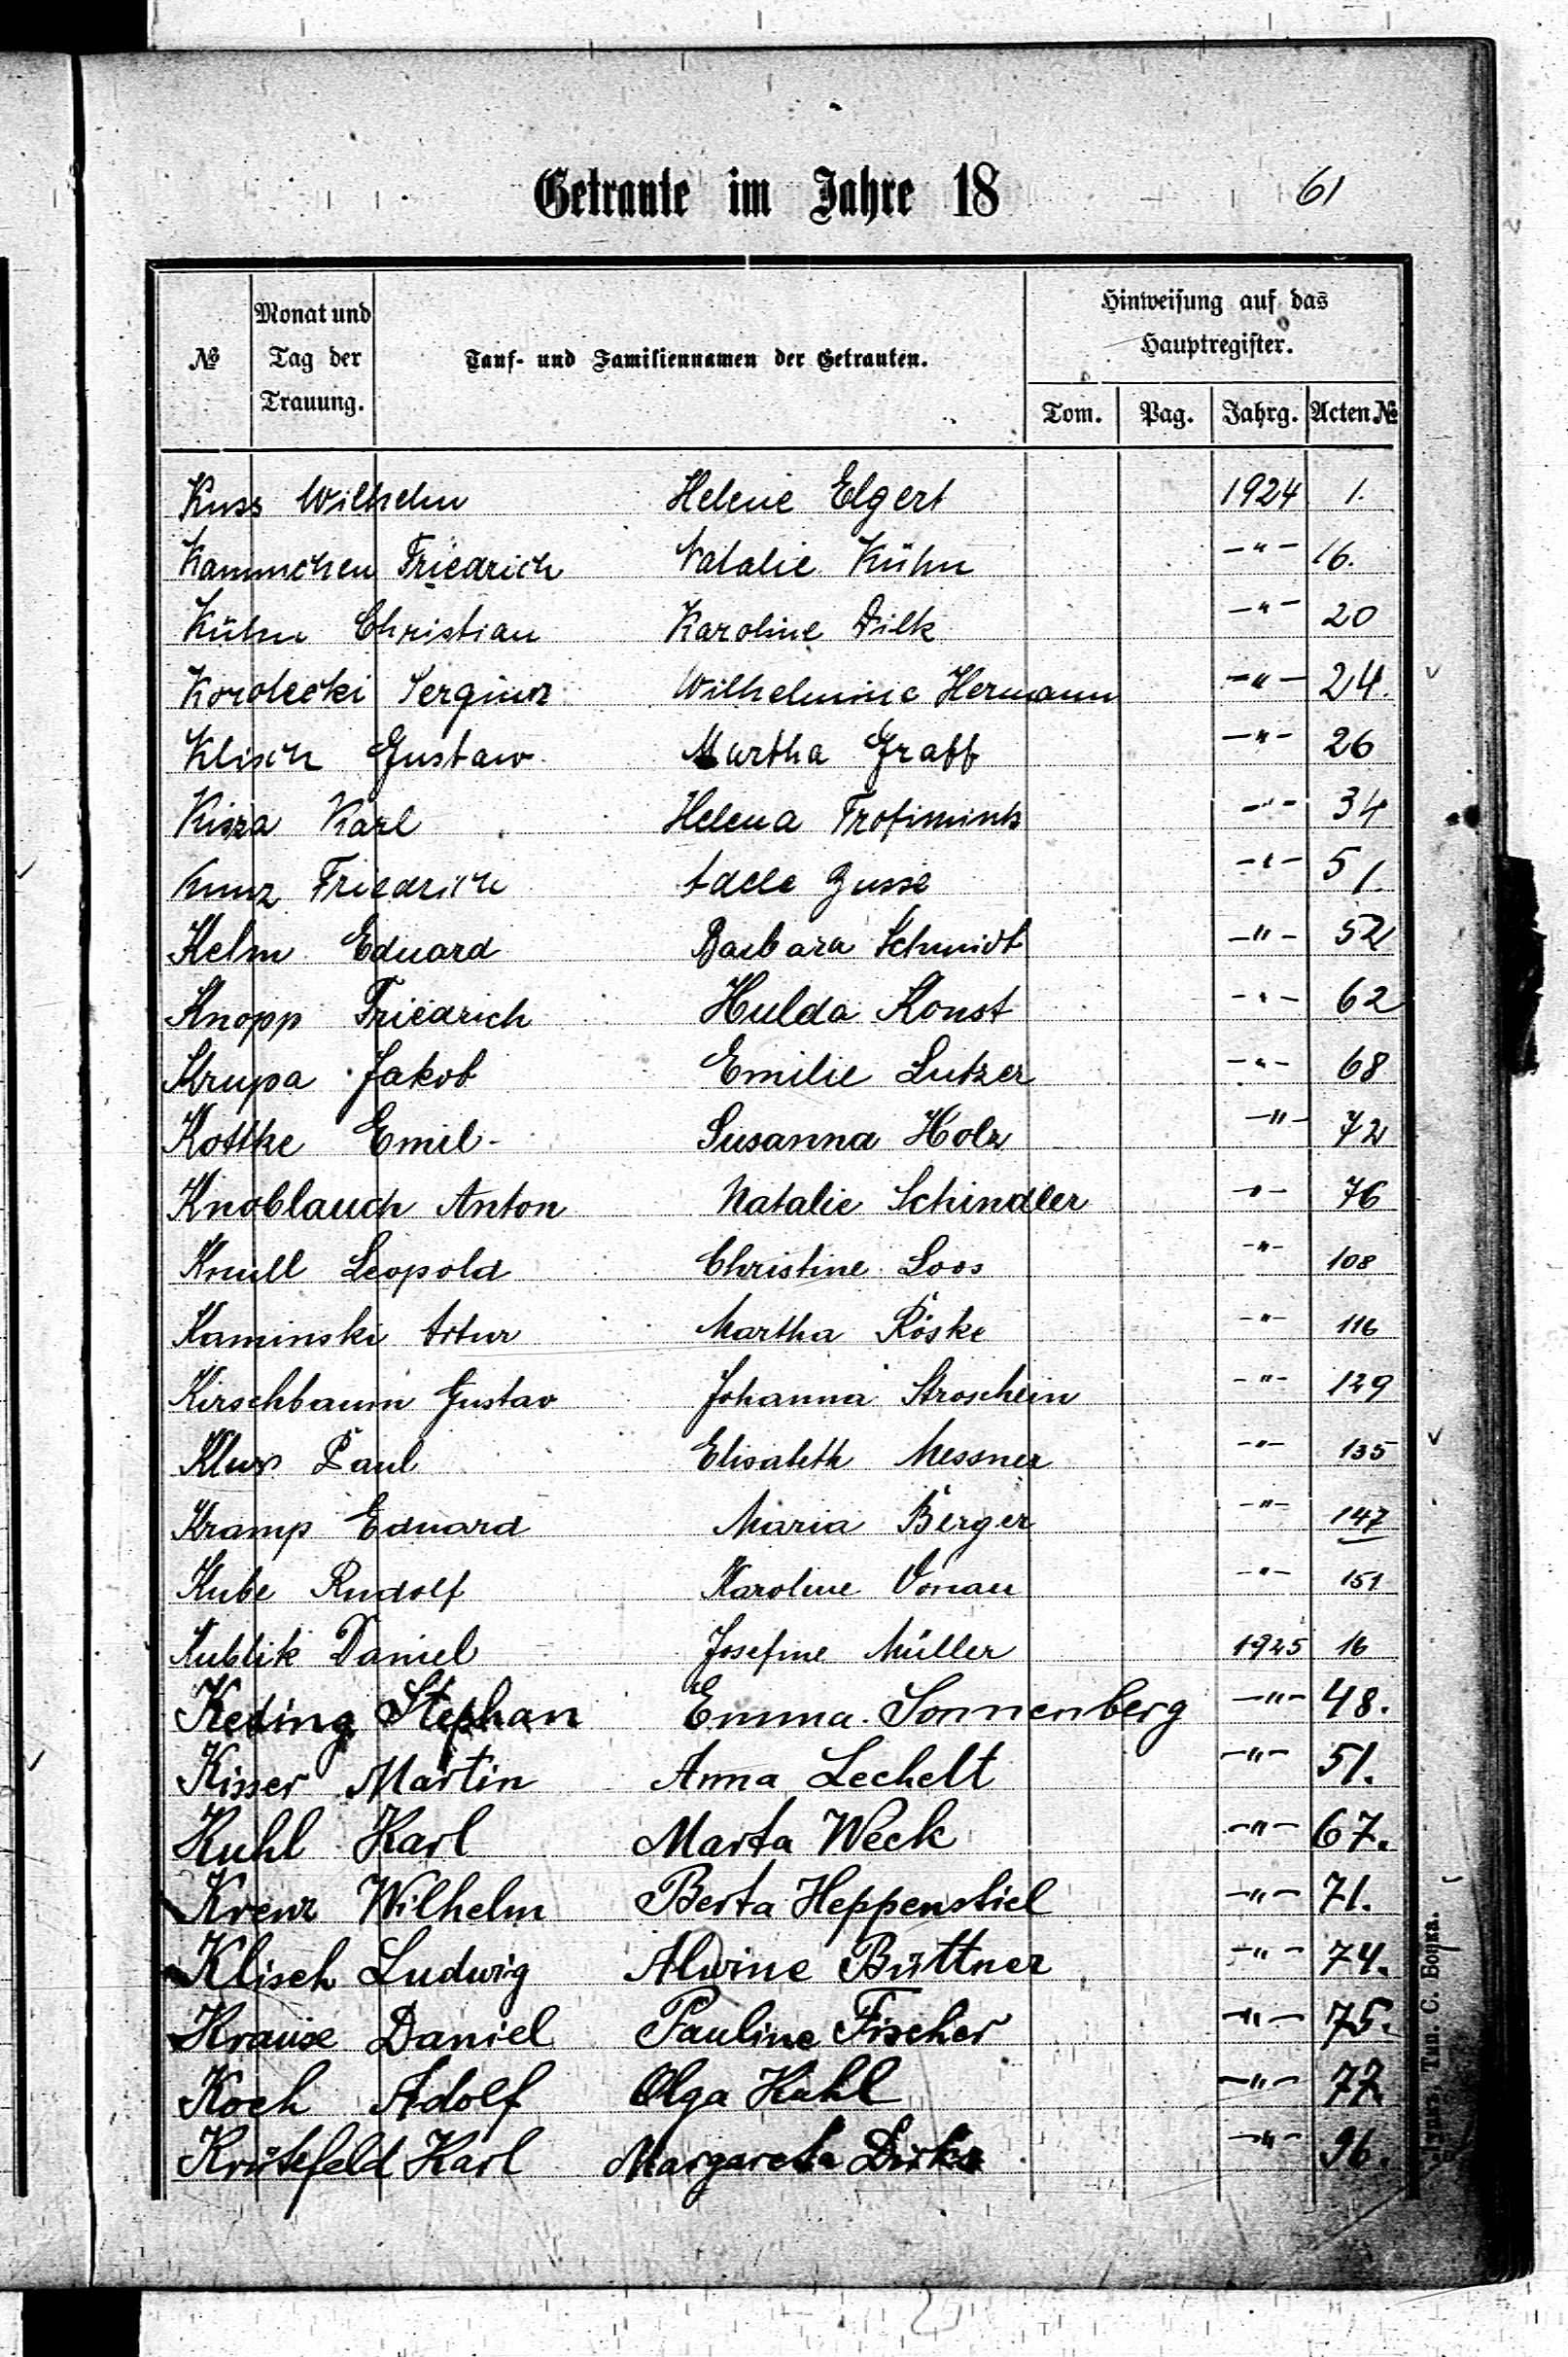 Getraute im Jahre 18 61
№ Monat und Tag der Trauung. Tauf- und Familiennamen der Getrauten. Hinweisung auf das Hauptregister.
Tom. Pag. Jahrg. Acten №
Kuss Wilhelm Helene Elgert 1924 1.
Kammchen Friedrich Natalie Kühn -"- 16.
Kühn Christian Karoline Dilk -"- 20
Korolecki Sergius Wilhelmine Hermann -"- 24.
Klisch Gustaw Martha Graff -"- 26
Kisza Karl Helena -"- 34
Kunz Friedrich Adele Gusse -"- 51.
Kelm Eduard Barbara Schmidt -"- 52
Knopp Friedrich Hulda Konst -"- 62
Krupa Jakob Emilie Lutzer -"- 68
Kottke Emil Susanna Holz -"- 72
Knoblauch Anton Natalie Schindler -"- 76
Knull Leopold Christine Loos -"- 108
Kaminski Artur Martha Röske -"- 116
Kirschbaum Gustav Johanna Stroschein -"- 129
Paul Elisabeth Messner -"- 135
Kramp Eduard Maria Berger -"- 147
Kube Rudolf Karoline Vonau -"- 151
Kublik Daniel Josefine Müller 1925 16
Keding Stephan Emma Sonnenberg -"- 48.
Kisser Martin Anna Lechelt -"- 51.
Kuhl Karl Marta Weck -"- 67.
Krenz Wilhelm Berta Heppenstiel -"- 71.
Klisch Ludwig Alwine Büttner -"- 74.
Krause Daniel Pauline Fischer -"- 75.
Koch Adolf Olga Kuhl -"- 77.
Krütefeld Karl Margareta Dirks -"- 96.